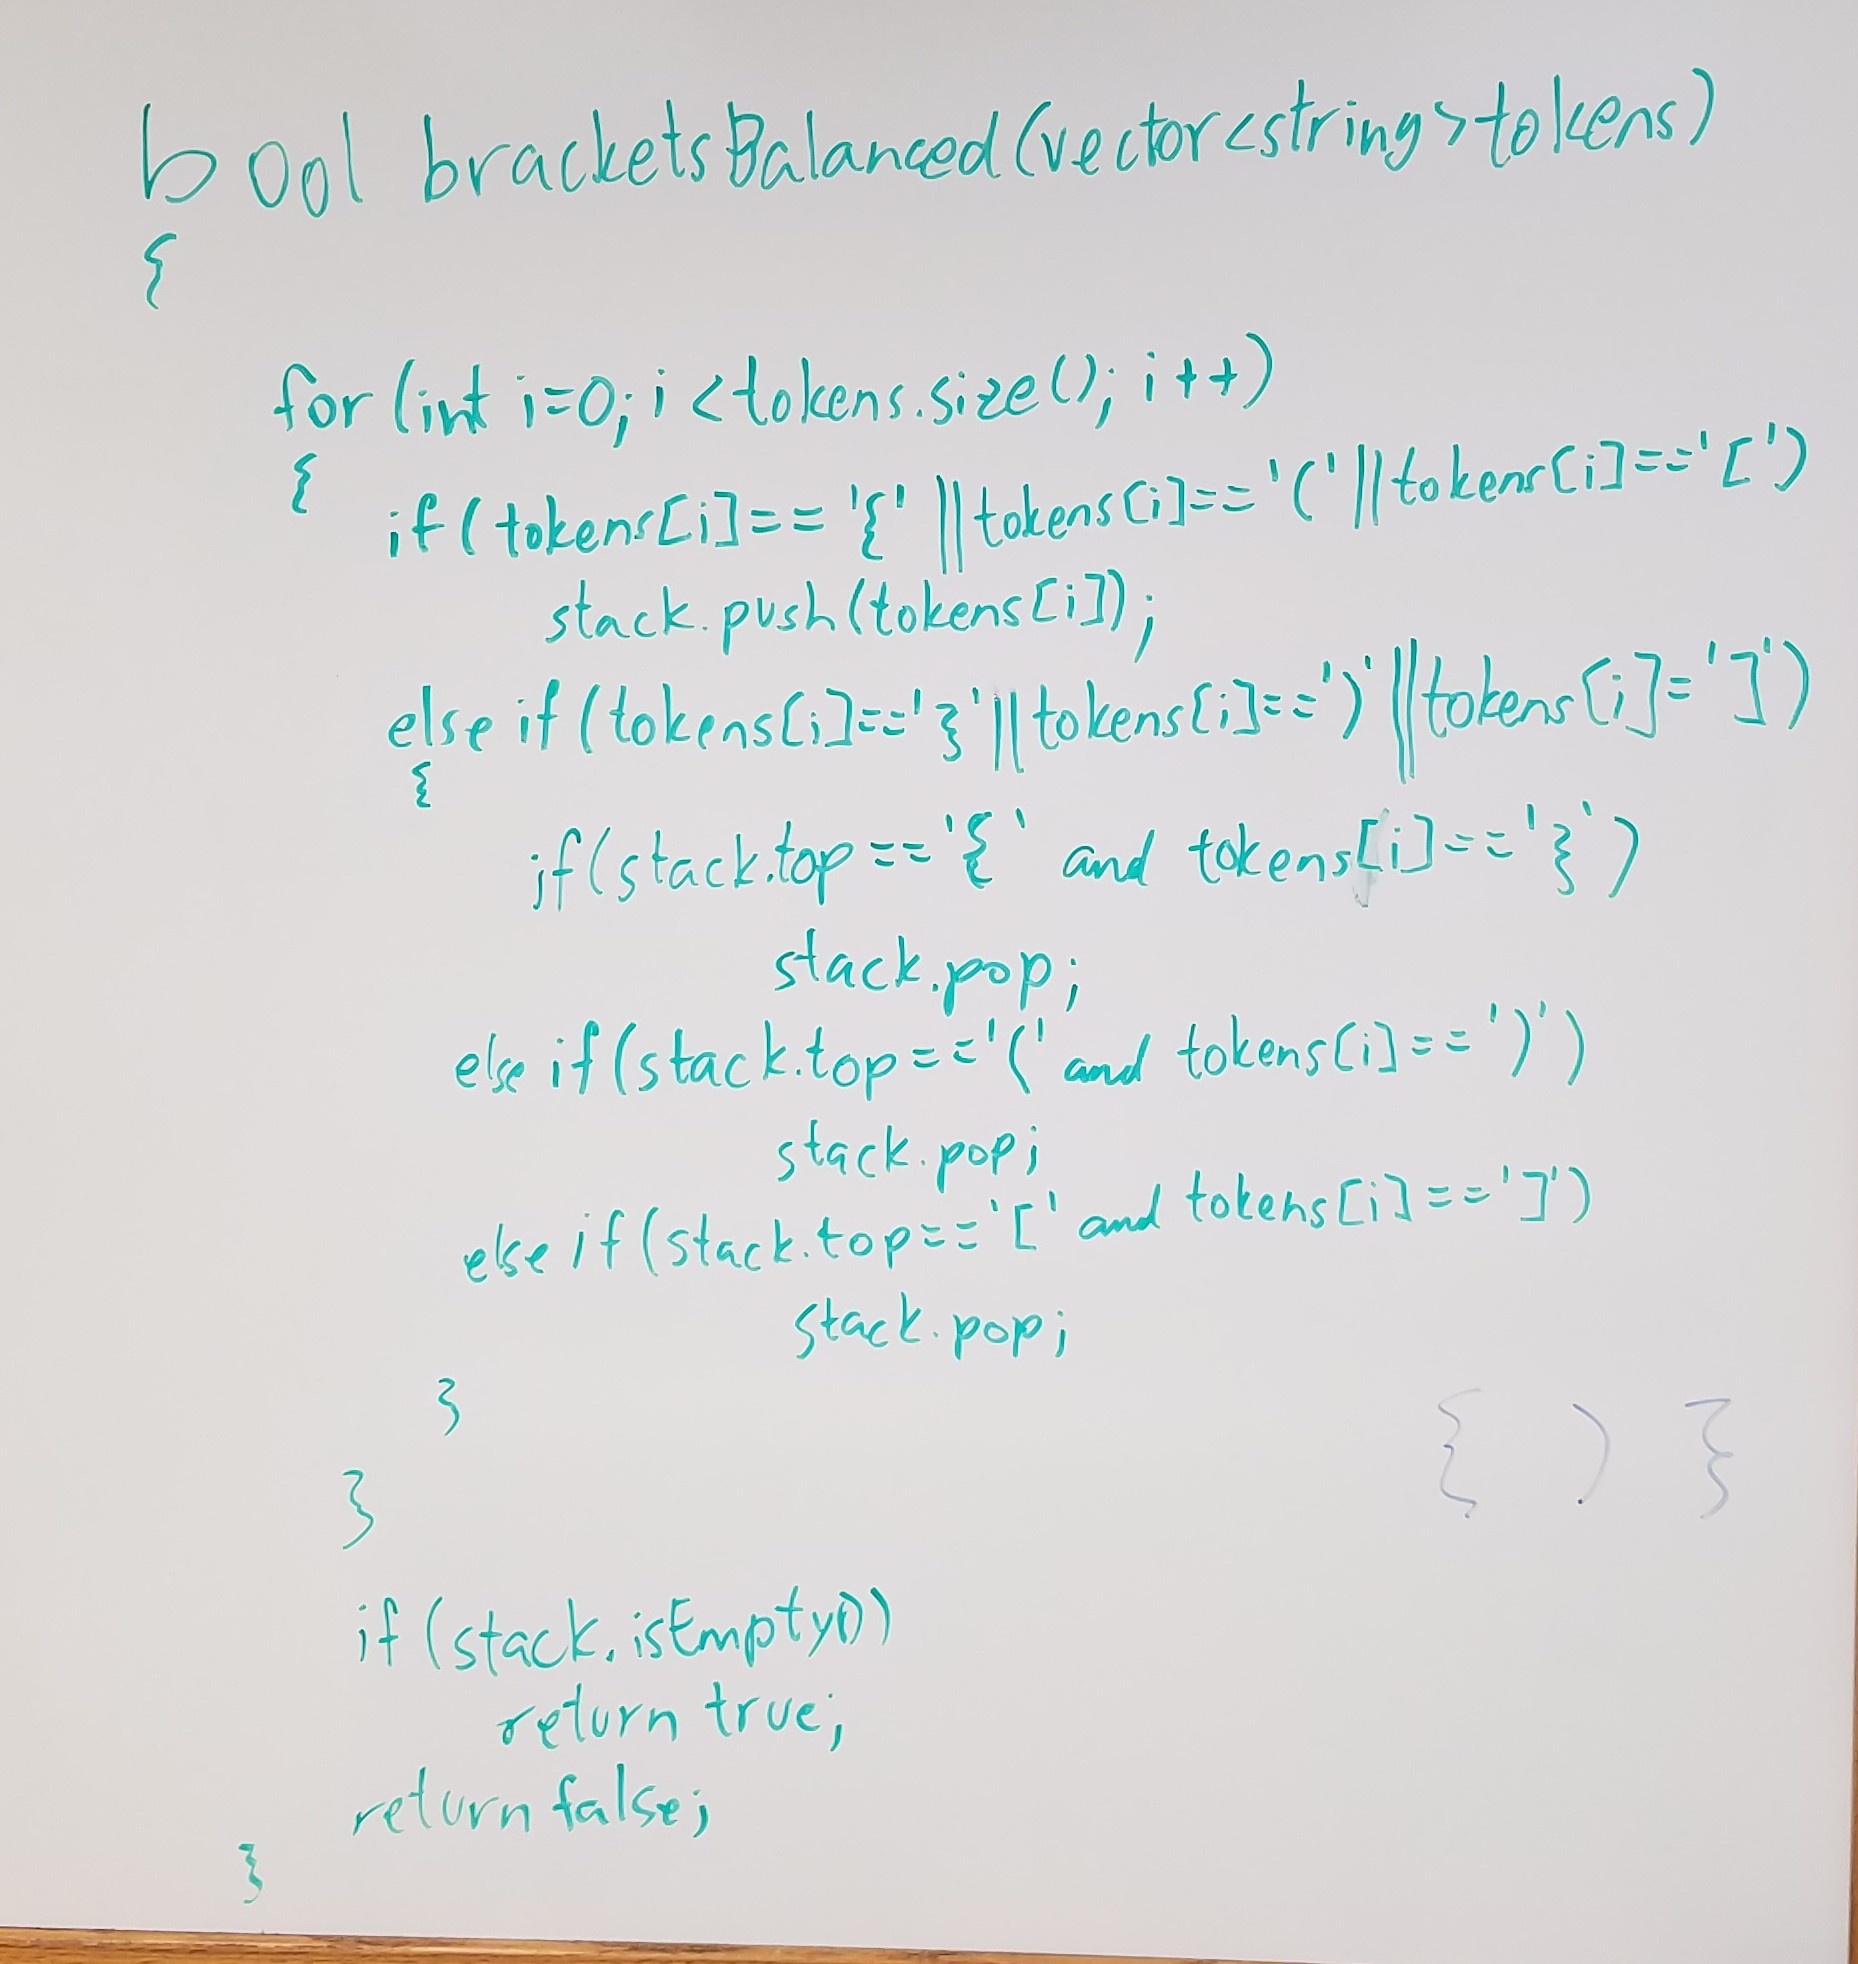 bool bracketsBalanced(vector<string>tokens)
{
for(int i=0; i<tokens.size(); i++)
{ if(tokens[i]=='{' || tokens[i]=='(' || tokens[i]=='[')
stack.push(tokens[i]);
else if(tokens[i]=='}' || tokens[i]==')' || tokens[i]=']')
{
if(stack.top=='{' and tokens[i]=='}')
stack.pop;
else if(stack.top=='(' and tokens[i]==')')
stack.pop;
else if(stack.top=='[' and tokens[i]==']')
stack.pop;
}
{ ) }
}
if(stack.isEmpty())
return true;
return false;
}